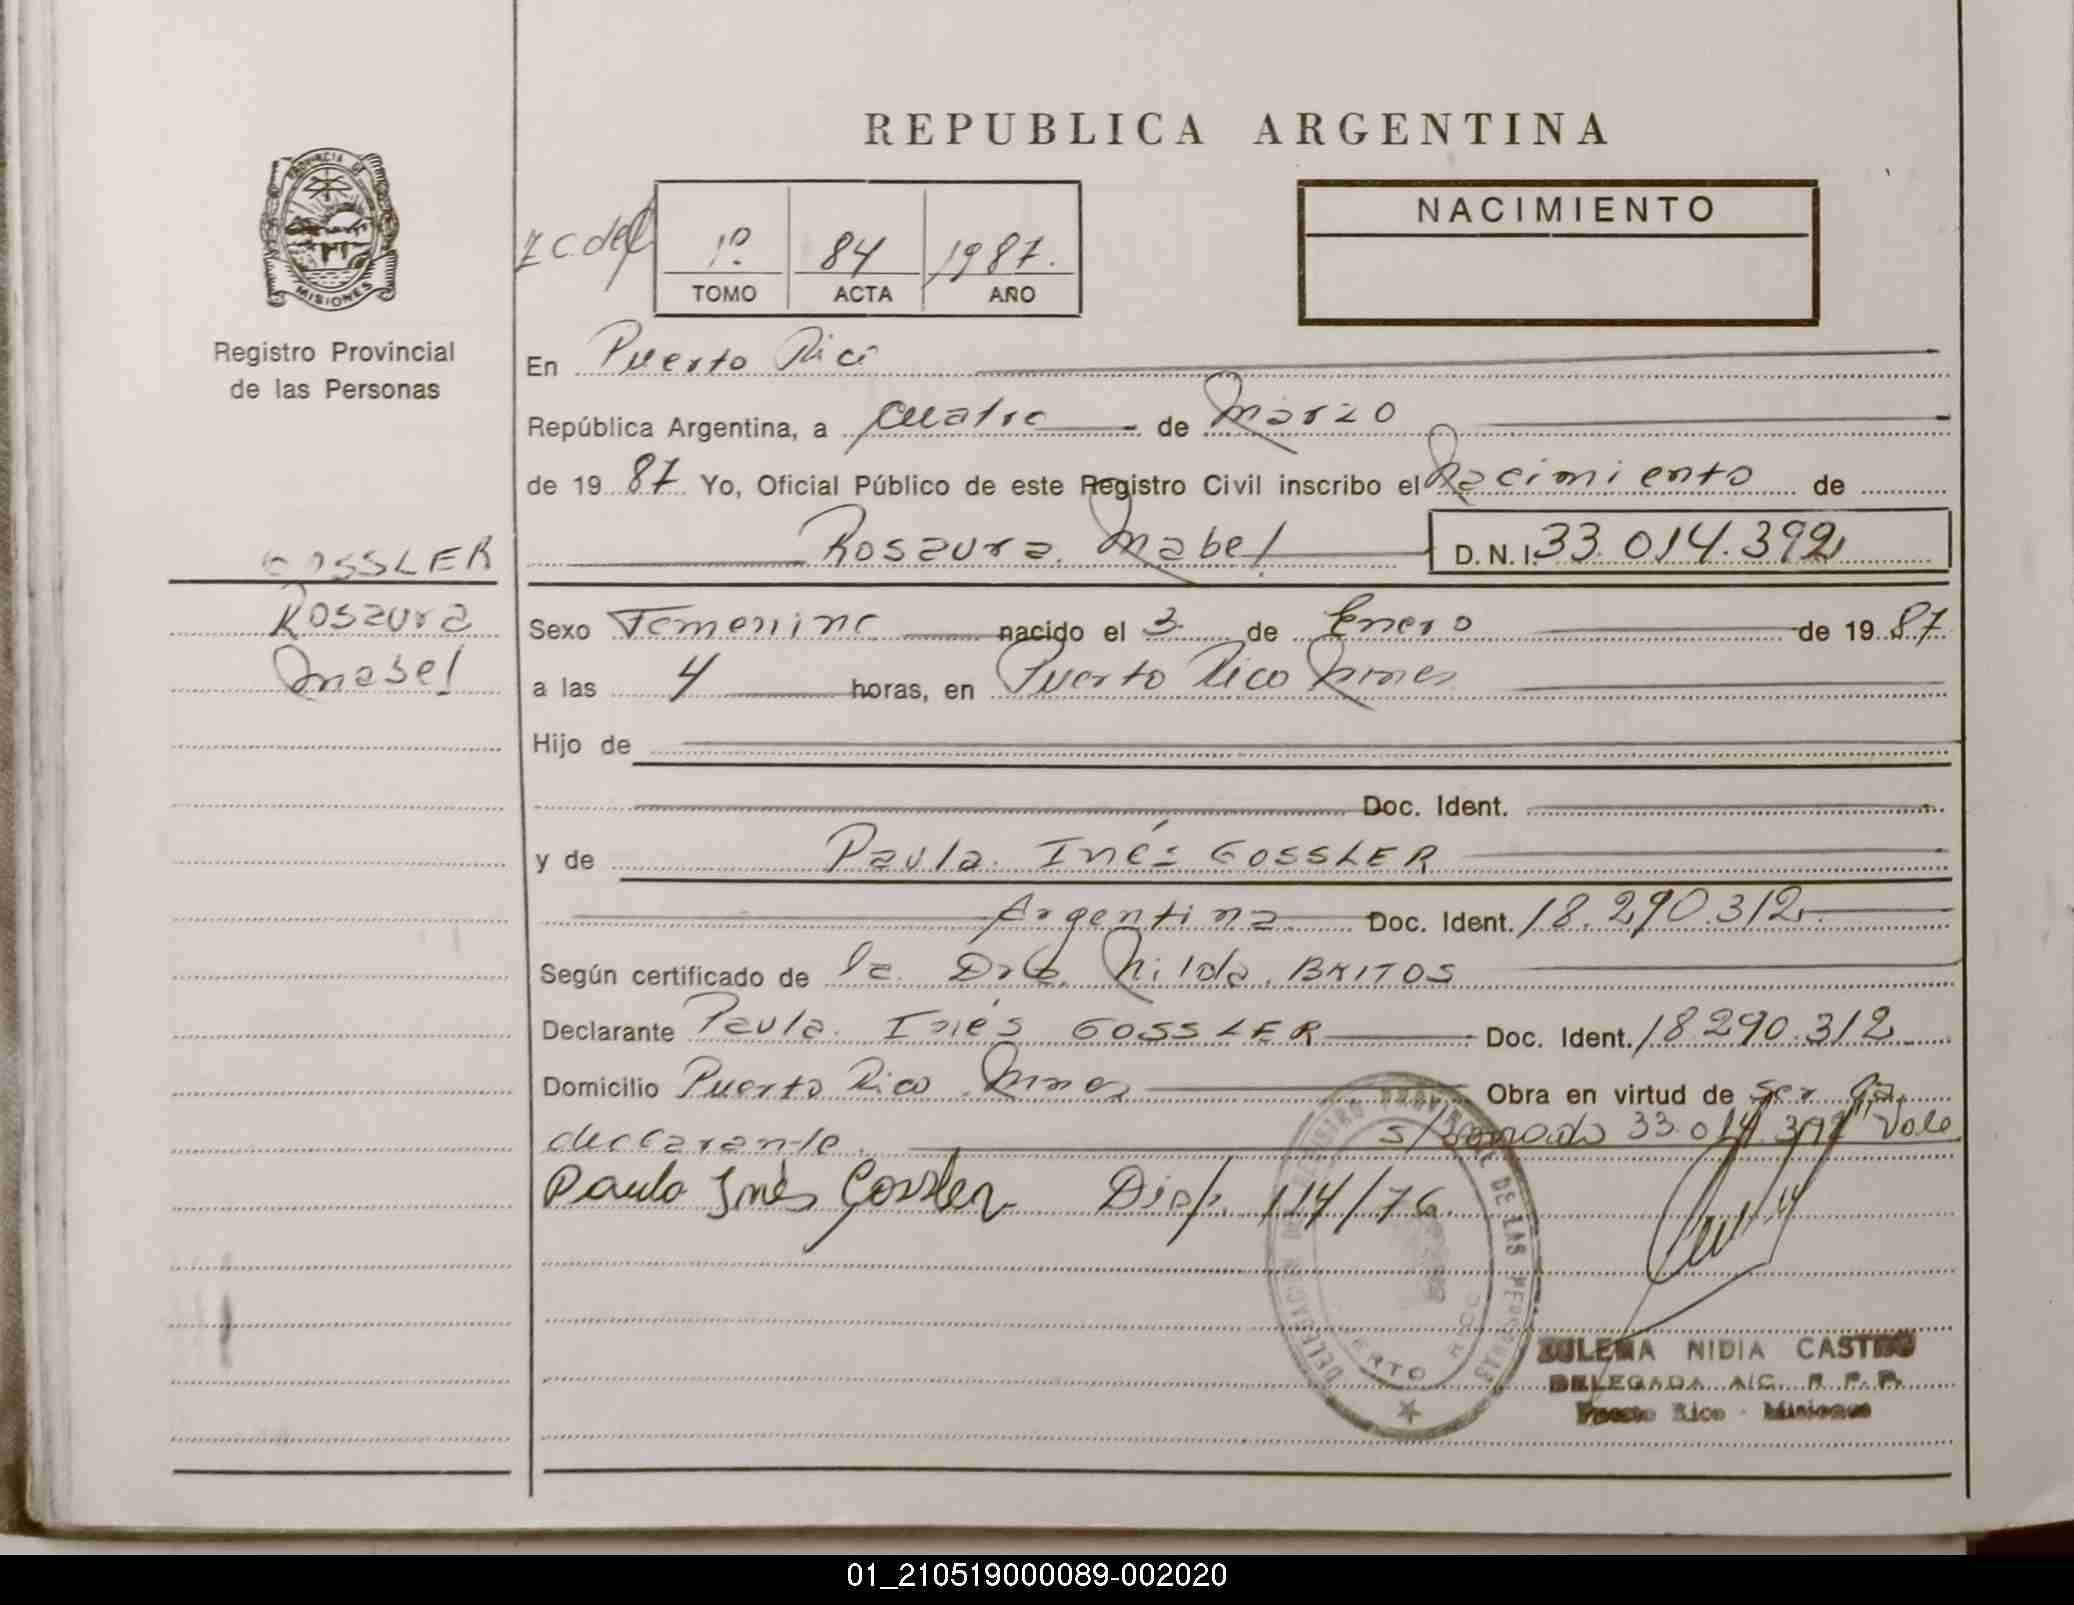 REPUBLICA ARGENTINA
PROVINCIA DE
MISIONES
Registro Provincial
de las Personas
1º 84 1987.
TOMO ACTA AÑO
NACIMIENTO
En Puerto Rico
República Argentina, a cuatro de Marzo
de 19 87 Yo, Oficial Público de este Registro Civil inscribo el Nacimiento de
Rosaura Mabel D.N.I. 33.014.392
GOSSLER
Rosaura
Mabel
Sexo Femenino nacido el 3 de Enero de 19 87
a las 4 horas, en Puerto Rico Mnes
Hijo de
Doc. Ident.
y de Paula Inés GOSSLER
Argentina Doc. Ident. 18.290.312
Según certificado de la Dra. Nilda BRITOS
Declarante Paula Inés GOSSLER Doc. Ident. 18.290.312
Domicilio Puerto Rico Mnes Obra en virtud de ser la
declarante. 33.014.392 Vale
Paula Inés Gossler Disp. 114/76
DELEGACION DEL REGISTRO PROVINCIAL DE LAS PERSONAS
PUERTO RICO
ZULEMA NIDIA CASTRO
DELEGADA A/C. R. P. P.
Puerto Rico - Misiones
01_210519000089-002020